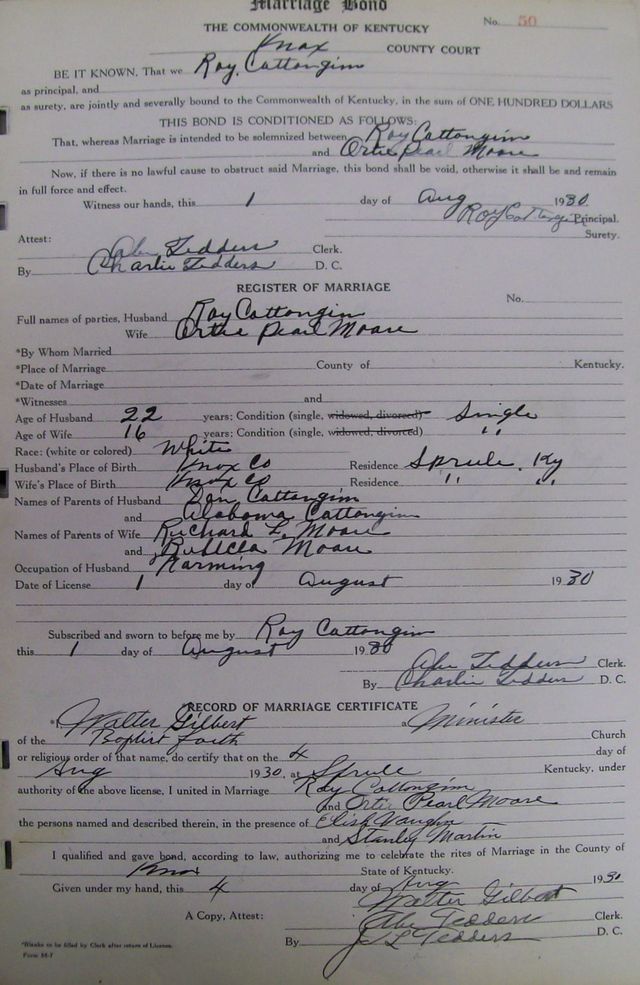 Marriage Bond
No. 50
THE COMMONWEALTH OF KENTUCKY
Knox COUNTY COURT
BE IT KNOWN, That we Roy Cattongim
as principal, and
as surety, are jointly and severally bound to the Commonwealth of Kentucky, in the sum of ONE HUNDRED DOLLARS
THIS BOND IS CONDITIONED AS FOLLOWS:
That, whereas Marriage is intended to be solemnized between Roy Cattongim
and Ortie Pearl Moore
Now, if there is no lawful cause to obstruct said Marriage, this bond shall be void, otherwise it shall be and remain
in full force and effect.
Witness our hands, this 1 day of Aug 1930.
Roy Cattongim Principal.
Surety.
Attest: Abe Tedders Clerk.
By Charlie Tedders D. C.
REGISTER OF MARRIAGE
No.
Full names of parties, Husband Roy Cattongim
Wife Ortie Pearl Moore
*By Whom Married
*Place of Marriage County of Kentucky.
*Date of Marriage
*Witnesses and
Age of Husband 22 years; Condition (single, widowed, divorced) Single
Age of Wife 16 years; Condition (single, widowed, divorced) "
Race: (white or colored) White
Husband's Place of Birth Knox Co Residence Sprule, Ky
Wife's Place of Birth Knox Co Residence " "
Names of Parents of Husband Dan Cattongim
and Alabama Cattongim
Names of Parents of Wife Richard L. Moore
and Rebecca Moore
Occupation of Husband Farming
Date of License 1 day of August 1930
Subscribed and sworn to before me by Roy Cattongim
this 1 day of August 1930
Abe Tedders Clerk.
By Charlie Tedders D. C.
RECORD OF MARRIAGE CERTIFICATE
* Walter Gilbert a Minister
of the Baptist faith Church
or religious order of that name, do certify that on the 4 day of
Aug 1930, at Sprule Kentucky, under
authority of the above license, I united in Marriage Roy Cattongim
and Ortie Pearl Moore
the persons named and described therein, in the presence of Elish Vaughn
and Stanley Martin
I qualified and gave bond, according to law, authorizing me to celebrate the rites of Marriage in the County of
Knox State of Kentucky.
Given under my hand, this 4 day of Aug 1930
Walter Gilbert
A Copy, Attest: Abe Tedders Clerk.
By J L Tedders D. C.
*Blanks to be filled by Clerk after return of License.
Form 88-7